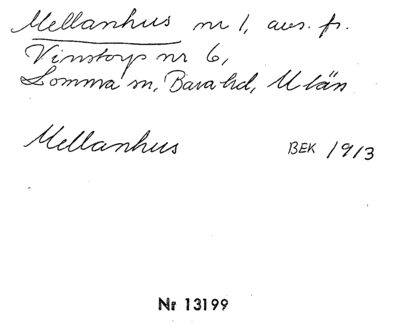 Mellanhus nr 1, avs. fr.
Vinstorp nr 6,
Lomma sn, Bara hd, M län
Mellanhus BEK 1913
Nr 13199